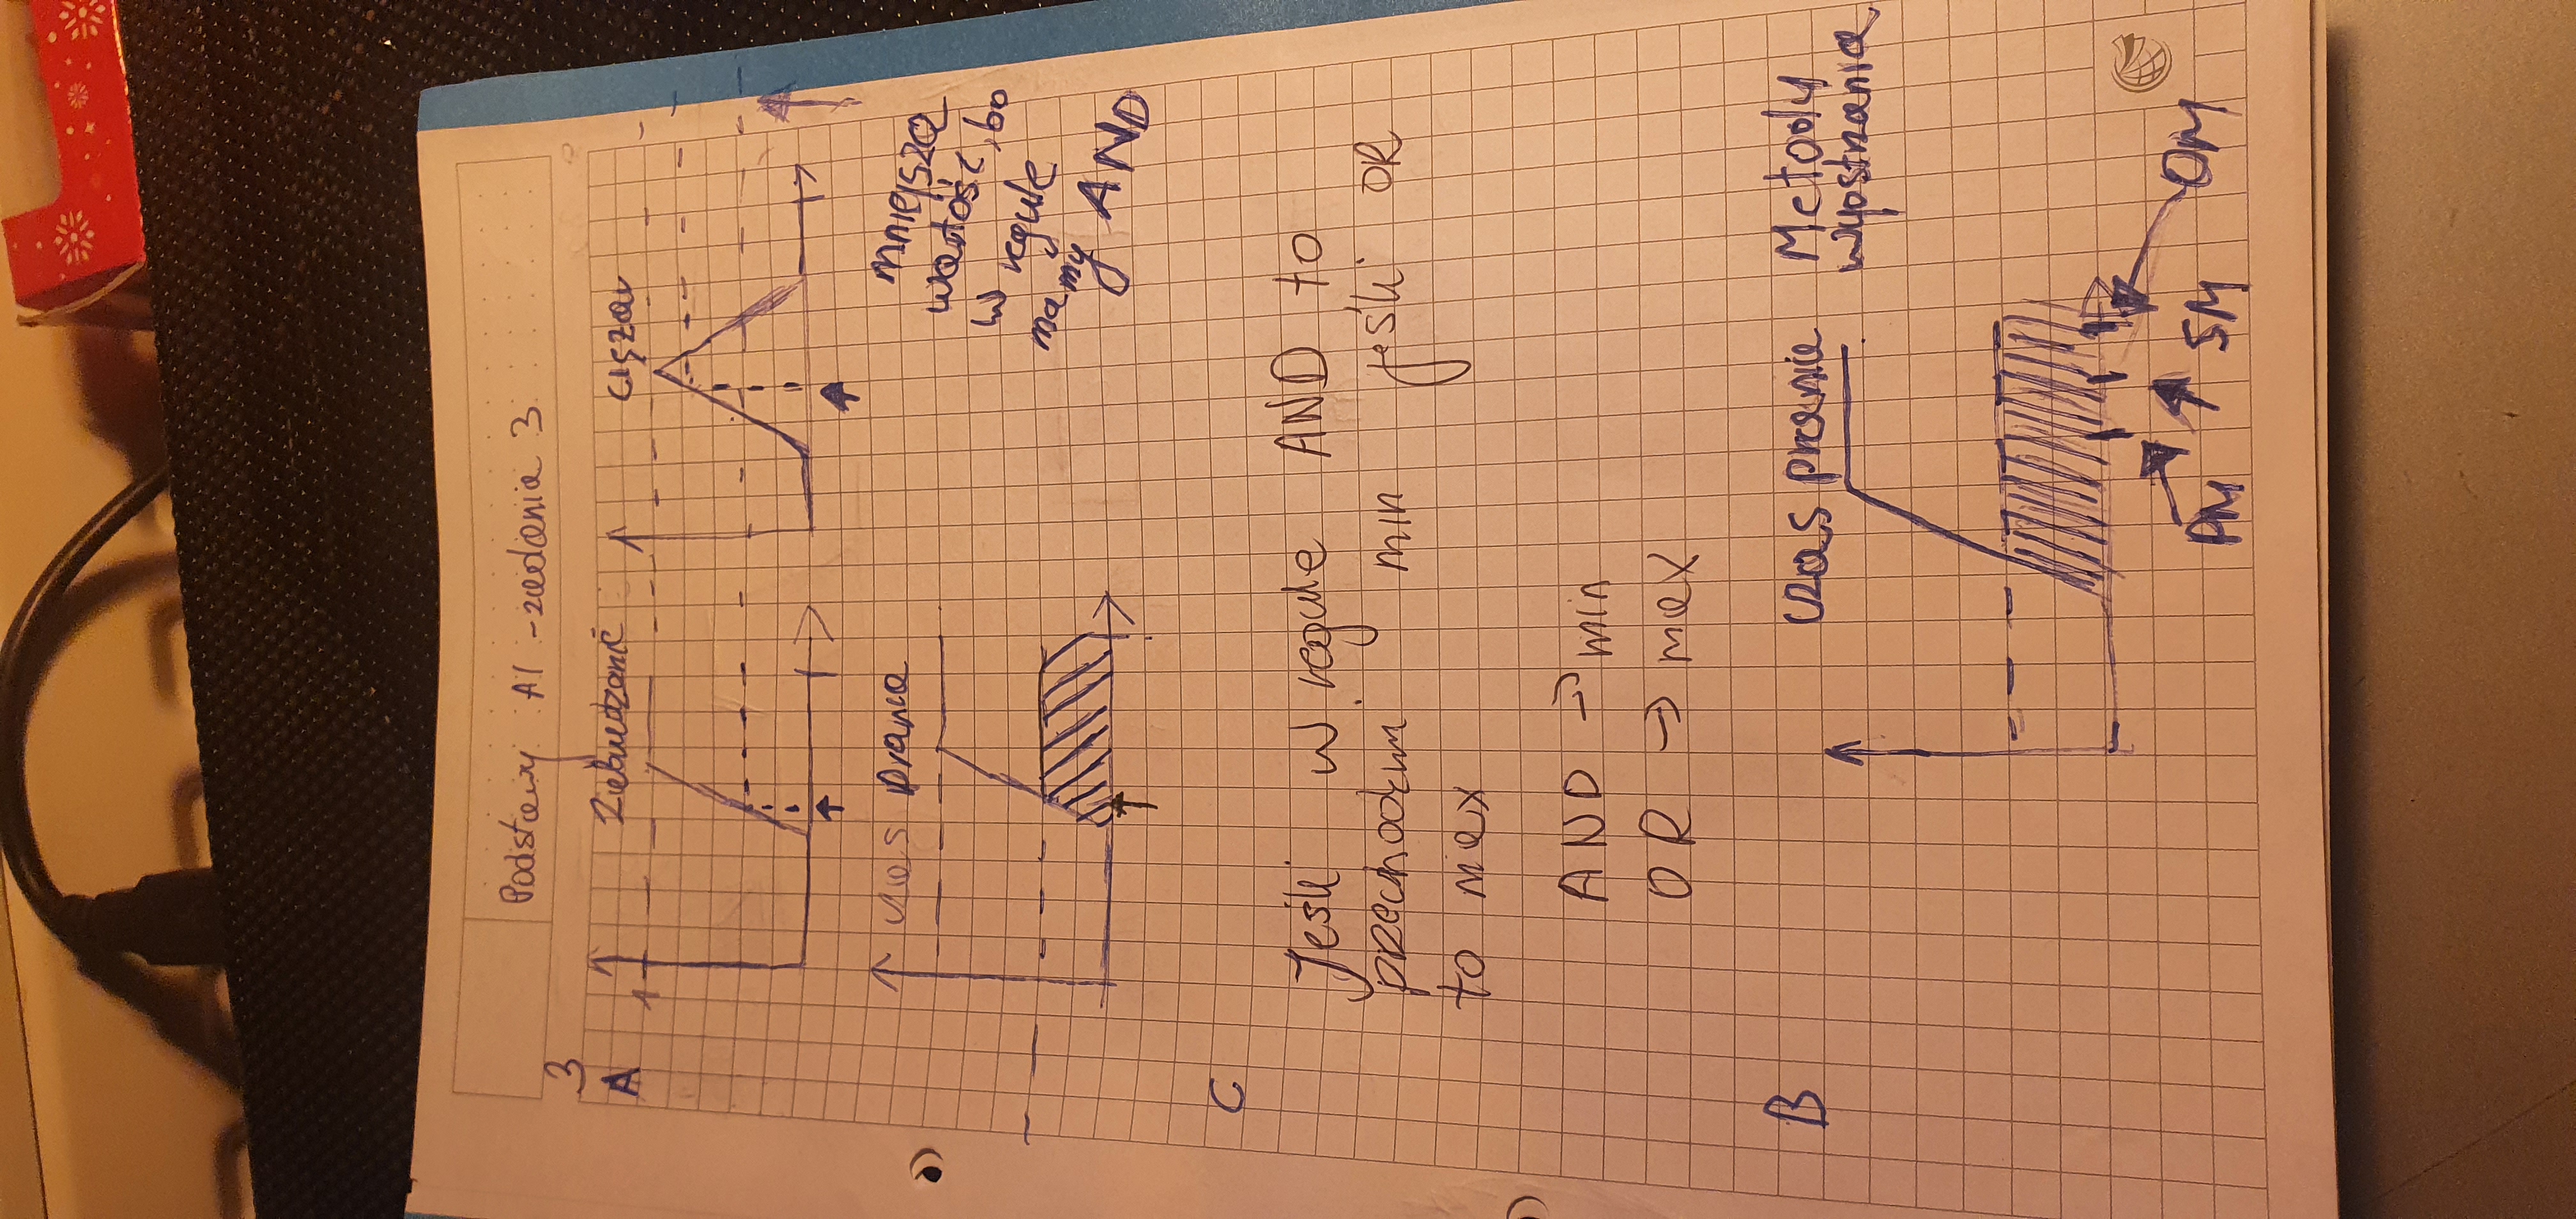 Podstawy AI - zadania 3
3
A
Zabrudzenie
ciężar
1
czas prania
mniejsza
wartość, bo
w regule
mamy
AND
C
Jeśli w regule AND to
przechodzim min jeśli OR
to max
AND → min
OR → max
B
czas prania
Metody
wyostrzania
PM
SM
OM